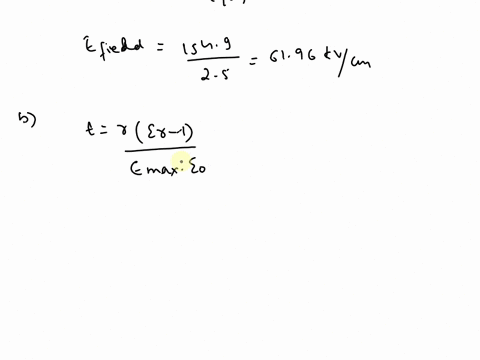 E field = 154.9 / 2.5 = 61.96 kV/cm
b) t = r (εr-1) / E max. ε0